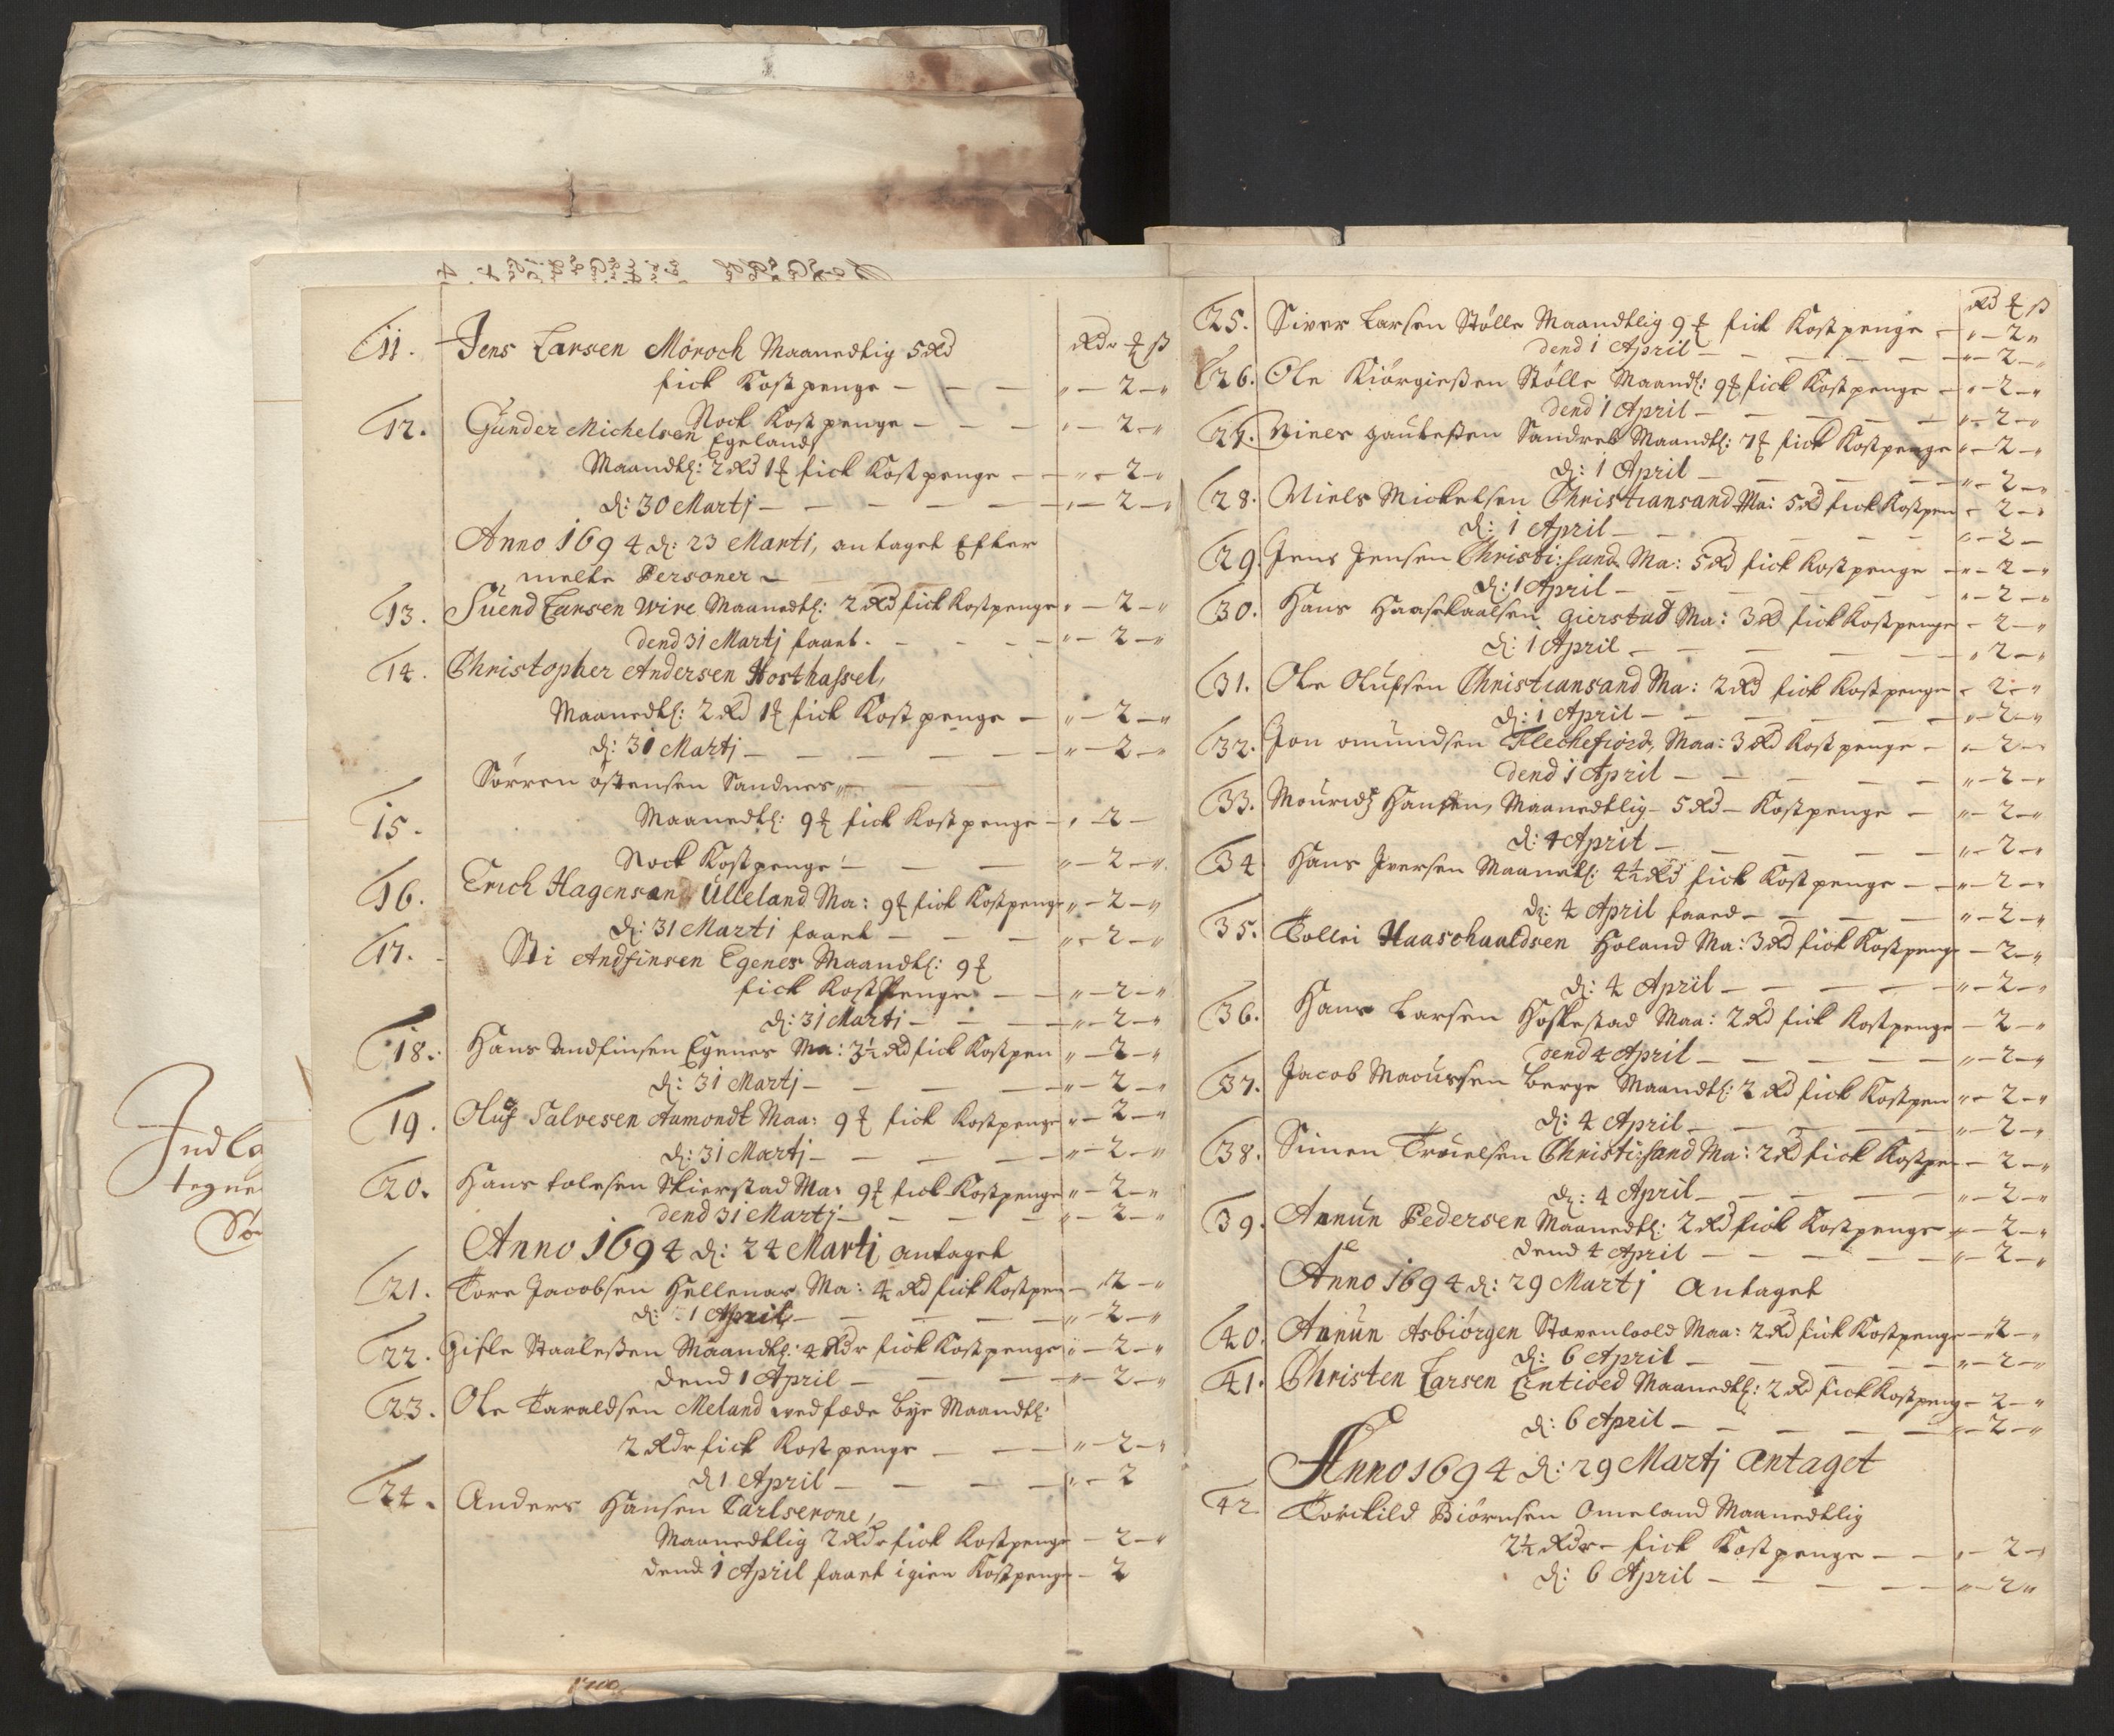 11. Jens Larsen Móroch Maanedtlig 5 Rd
Rdr ß
fick Kostpenge — — — „ — 2 — „
Nock Kostpenge — — — „ — 2 — „
12. Gunder Michelsen Egeland
Maandtl: 2 Rd 1 fick Kostpenge — — „ — 2 — „
d: 30 Martj — — — — — „ — 2 — „
Anno 1694 d: 23 Marti, antaget Efter
melte Personer —
13. Suend Larsen Wire Maanedtl: 2 Rd fick Kostpenge „ — 2 — „
dend 31 Martj faaet. — — — — „ — 2 — „
14. Christopher Andersen Hosthassel,
Maanedtl: 2 Rd 1 fick Kostpenge — „ — 2 — „
d: 31 Martj — — — — „ — 2 — „
Sörren östensen Sandnes
15. Maanedtl: 9 fick Kostpenge — „ — 2 —
Nock Kostpenge — — — „ — 2 — „
16. Erich Hagensen Ulleland Ma: 9 fick Kostpenge „ — 2 — „
d: 31 Marti faaet — — — „ — 2 — „
17. Andfinsen Egenes Maandtl: 9
fick Kostpenge — — „ — 2 — „
d: 31 Marti — — — „ — 2 — „
18. Hans Andfinsen Egenes Ma: 3½ Rd fick Kostpen „ — 2 — „
d: 31 Martj — — — — „ — 2 — „
19. Oluf Salvesen Aamondt Maa: 9 fick Kostpenge „ — 2 — „
d: 31 Martj — — — — „ — 2 — „
20. Hans tolesen Skierstad Ma: 9 fick Kostpenge „ — 2 — „
dend 31 Martj — — — — „ — 2 — „
Anno 1694 d: 24 Martj antaget
21. Tore Jacobsen Hellenas Ma: 4 Rd fick Kostpen — 2 — „
d: 1 April — — — — „ — 2 — „
22. Gisle Staalessen Maandtl: 4 Rdr fick Kostpenge „ — 2 — „
dend 1 April — — — — „ — 2 — „
23. Ole Taraldsen Meland wed fæde bye Maandtl:
2 Rdr fick Kostpenge — — — „ — 2 — „
d 1 April — — — — „ — 2
24. Anders Hansen Carlscrone,
Maanedtlig 2 Rdr fick Kostpenge — 2 — „
dend 1 April faaet igien Kostpenge — 2
Rd ß
25. Siver Larsen Stölle Maandtlig 9 fick Kostpenge — „ — 2 „
dend 1 April — — — — — „ — 2 — „
26. Ole Kiörgiessen Stölle Maandl: 9 fick Kostpenge — „ — 2 — „
dend 1 April — — — — „ — 2 — „
27. Niels gautessen Sandvek Maandtl: 7 fick Kostpenge „ — 2 — „
d: 1 April — — — — „ — 2 — „
28. Niels Mickelsen Christiansand Ma: 5 Rd fick Kostpen — 2 — „
d: 1 April — — — — „ — 2 —
29. Jens Jensen Christi: sand Ma: 5 Rd fick Kostpenge — „ — 2 — „
d: 1 April — — — — „ — 2 — „
30. Hans Haaskaalsen Gierstad Ma: 3 Rd fick Kostpenge — 2 — „
d: 1 April — — — — „ 2 — „
31. Ole Olufsen Christiansand Ma: 2 Rd fick Kostpenge — 2 — „
d: 1 April — — — — „ — 2 — „
32. Jon omundsen Flechefiord, Maa: 3 Rd Kostpenge — „ — 2 —
dend 1 April — — — — „ — 2 — „
33. Mouridz Hansen, Maanedtlig — 5 Rd — Kostpenge — „ — 2 — „
d: 4 April — — — — „ — 2 — „
34 Hans Iversen Maandtl: 4½ Rd fick Kostpenge — — „ — 2 — „
d: 4 April faaed — — — — „ — 2 — „
35. Tollei Haaschaaldsen Holand Ma: 3 Rd fick Kostpenge — 2 — „
d: 4 April — — — — „ — 2 — „
36. Hans Larsen HosKestad Maa: 2 Rd fick Kostpenge — 2 — „
dend 4 April — — — — „ — 2 — „
37. Jacob Macussen berge Maandtl: 2 Rd fick Kostpen „ — 2 — „
d: 4 April — — — — „ — 2 — „
38. Simen Troielsen Christi: sand Ma: 2 Rd fick Kostpe — 2 — „
d: 4 April — — — — „ — 2 — „
39. Annun Pedersen Maanedtl: 2 Rd fick Kostpenge „ — 2 — „
dend 4 April — — — — „ — 2 — „
Anno 1694 d: 29 Martj Antaget
40. Annun Asbiörgen Maa: 2 Rd fick Kostpenge — 2 — „
d: 6 April — — — — „ — 2 — „
41. Christen Larsen Maanedtl: 2 Rd fick Kostpeng — 2 — „
d: 6 April — — — — „ — 2 — „
Anno 1694 d: 29 Martj Antaget
42 Torckild Biörnsen Omeland Maanedtlig
2½ Rdr — fick Kostpenge — — „ — 2 —
d: 6 April — — — — „ — 2 „
Indla
tegne